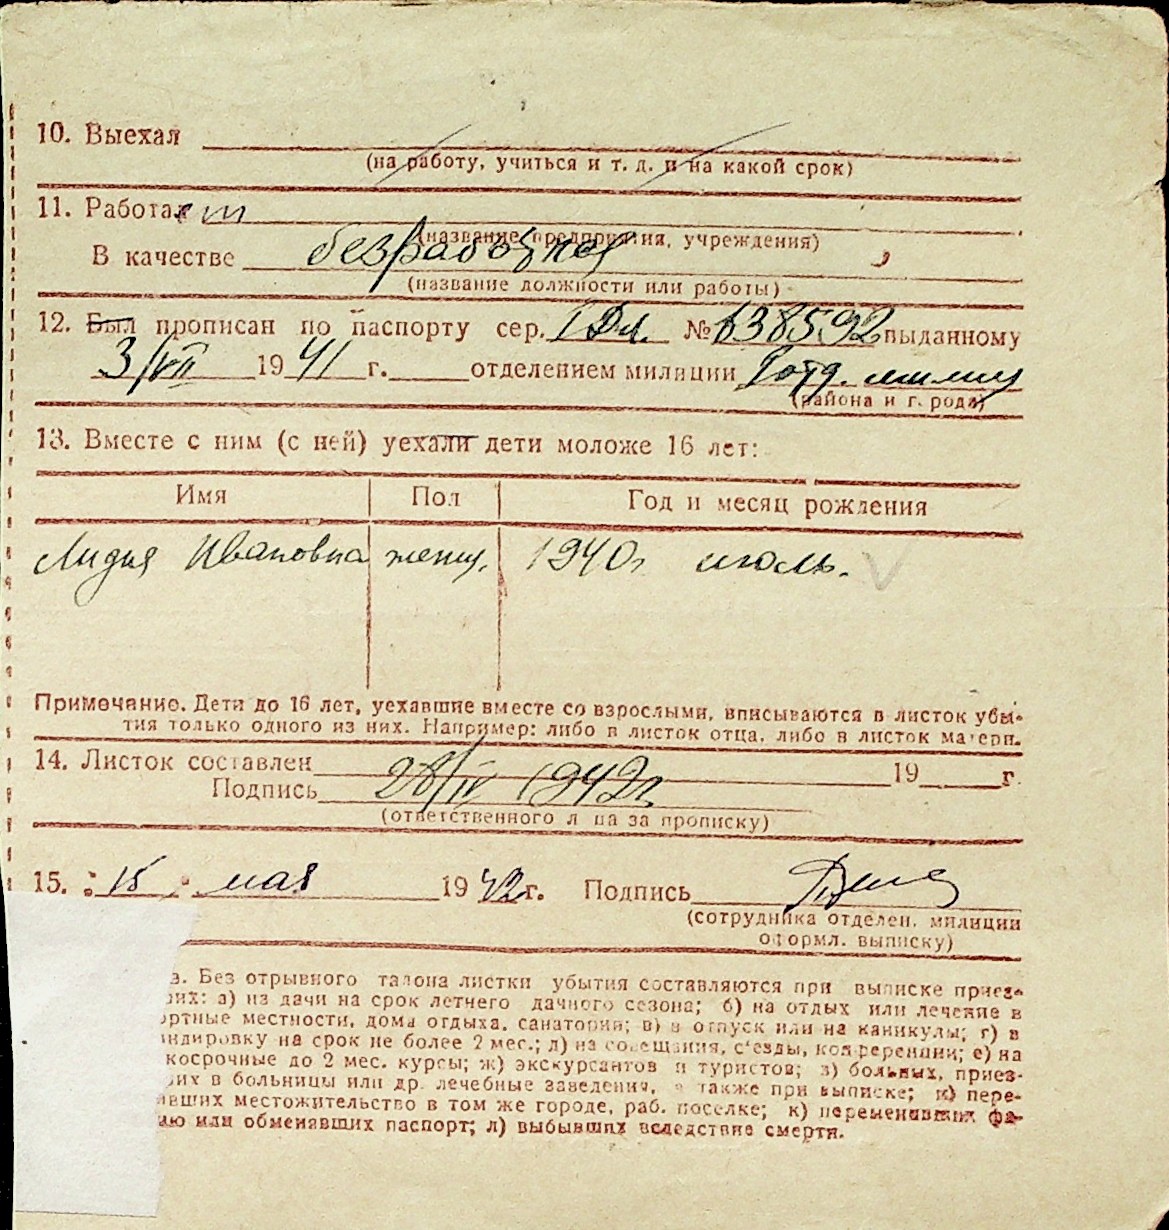 10. Выехал
(на работу, учиться и т. д. и на какой срок)
11. Работает
(название предприятия, учреждения)
В качестве безработная
(название должности или работы)
12. Был прописан по паспорту сер. I Дл. № 638592 выданному
3/VII 1941 г. отделением милиции I отд. милиц
(района и города)
13. Вместе с ним (с ней) уехали дети моложе 16 лет:
Имя Пол Год и месяц рождения
Лидия Ивановна женщ. 1940 г июль.
Примечание. Дети до 16 лет, уехавшие вместе со взрослыми, вписываются в листок убы-
тия только одного из них. Например: либо в листок отца, либо в листок матери.
14. Листок составлен 28/IV 1942 г 19 г.
Подпись
(ответственного лица за прописку)
15. 15 мая 1942 г. Подпись
(сотрудника отделен. милиции
оформл. выписку)
в. Без отрывного талона листки убытия составляются при выписке приез-
ших: а) из дачи на срок летнего дачного сезона; б) на отдых или лечение в
ортные местности, дома отдыха, санатории; в) в отпуск или на каникулы; г) в
ндировку на срок не более 2 мес.; д) на совещания, с'езды, конференции; е) на
косрочные до 2 мес. курсы; ж) экскурсантов и туристов; з) больных, приез-
ших в больницы или др. лечебные заведения, а также при выписке; и) пере-
ивших местожительство в том же городе, раб. поселке; к) переменивших фа-
ию или обменявших паспорт; л) выбывших вследствие смерти.